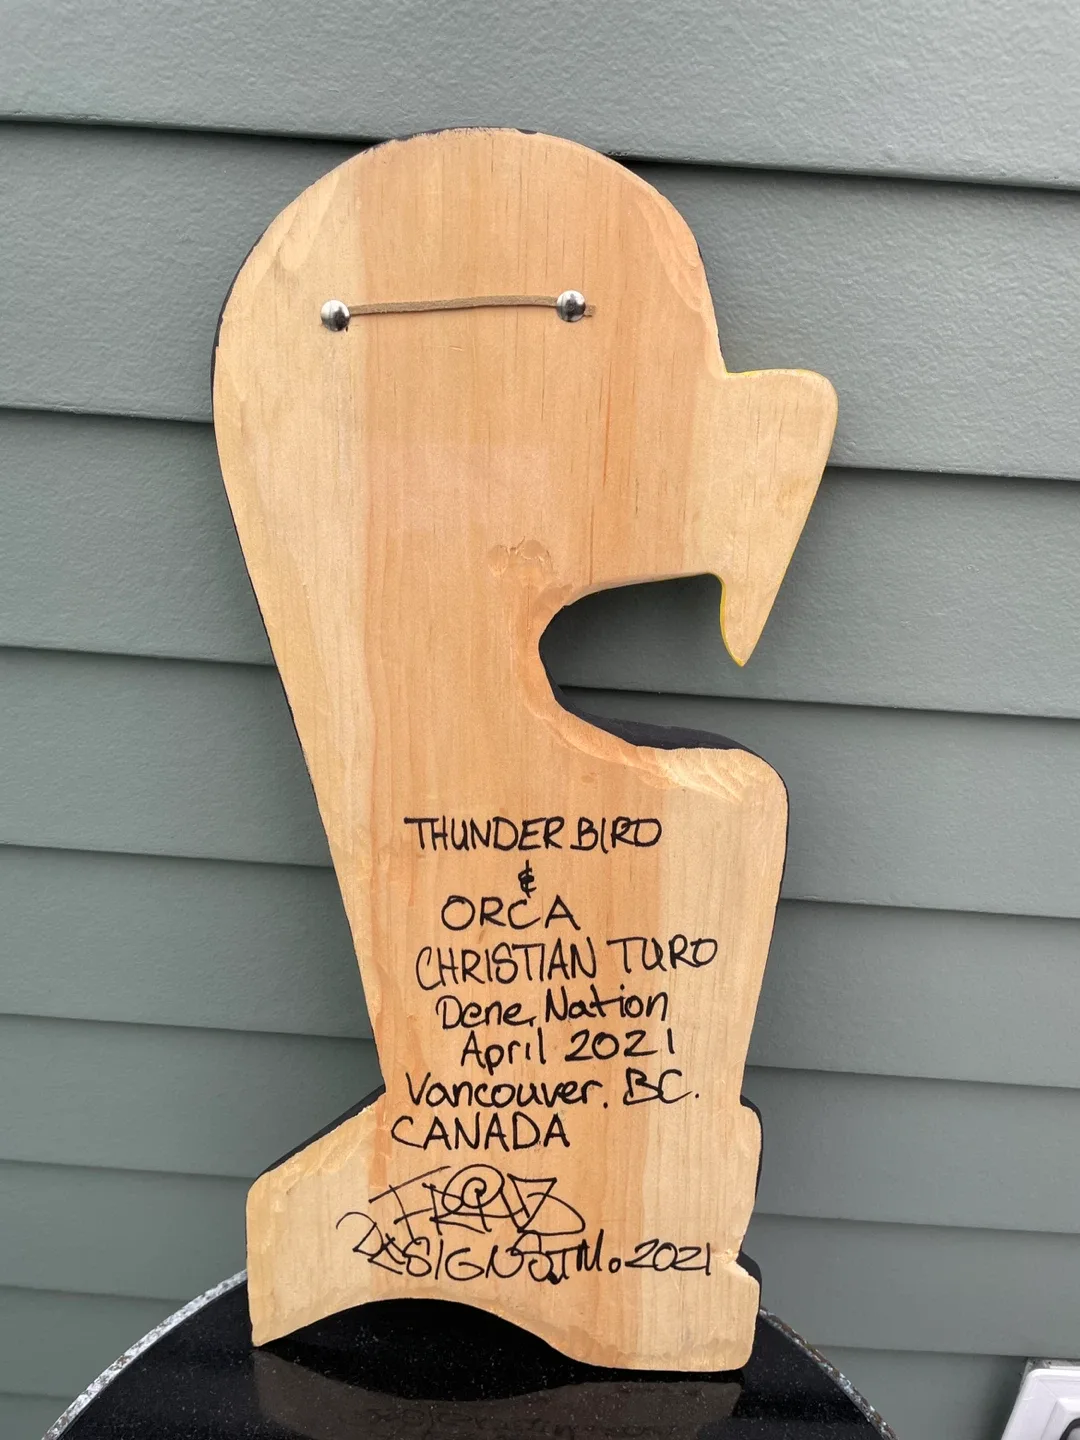 THUNDERBIRD
&
ORCA
CHRISTIAN TURO
Dene, Nation
April 2021
Vancouver. BC.
CANADA
DESIGNS.TM. 2021